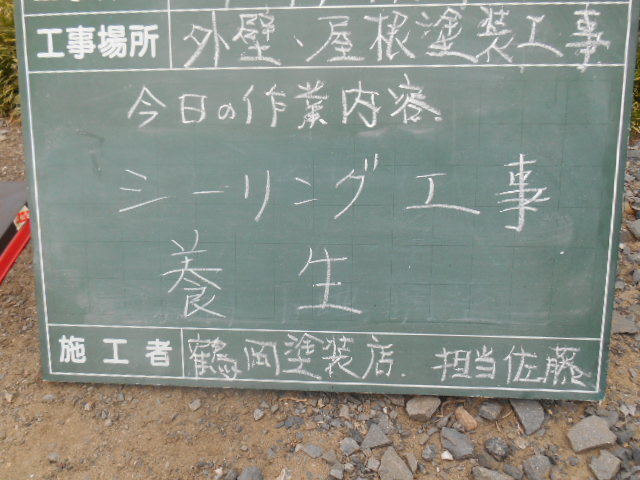 工事場所 外壁、屋根塗装工事
今日の作業内容
シーリング工事
養生
施工者 鶴岡塗装店 担当佐藤